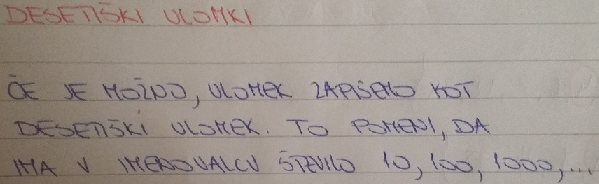 DESETIŠKI ULOMKI
ČE JE MOŽNO, ULOMEK ZAPIŠEMO KOT
DESETIŠKI ULOMEK. TO POMENI, DA
IMA V IMENOVALCU ŠTEVILO 10, 100, 1000, ...